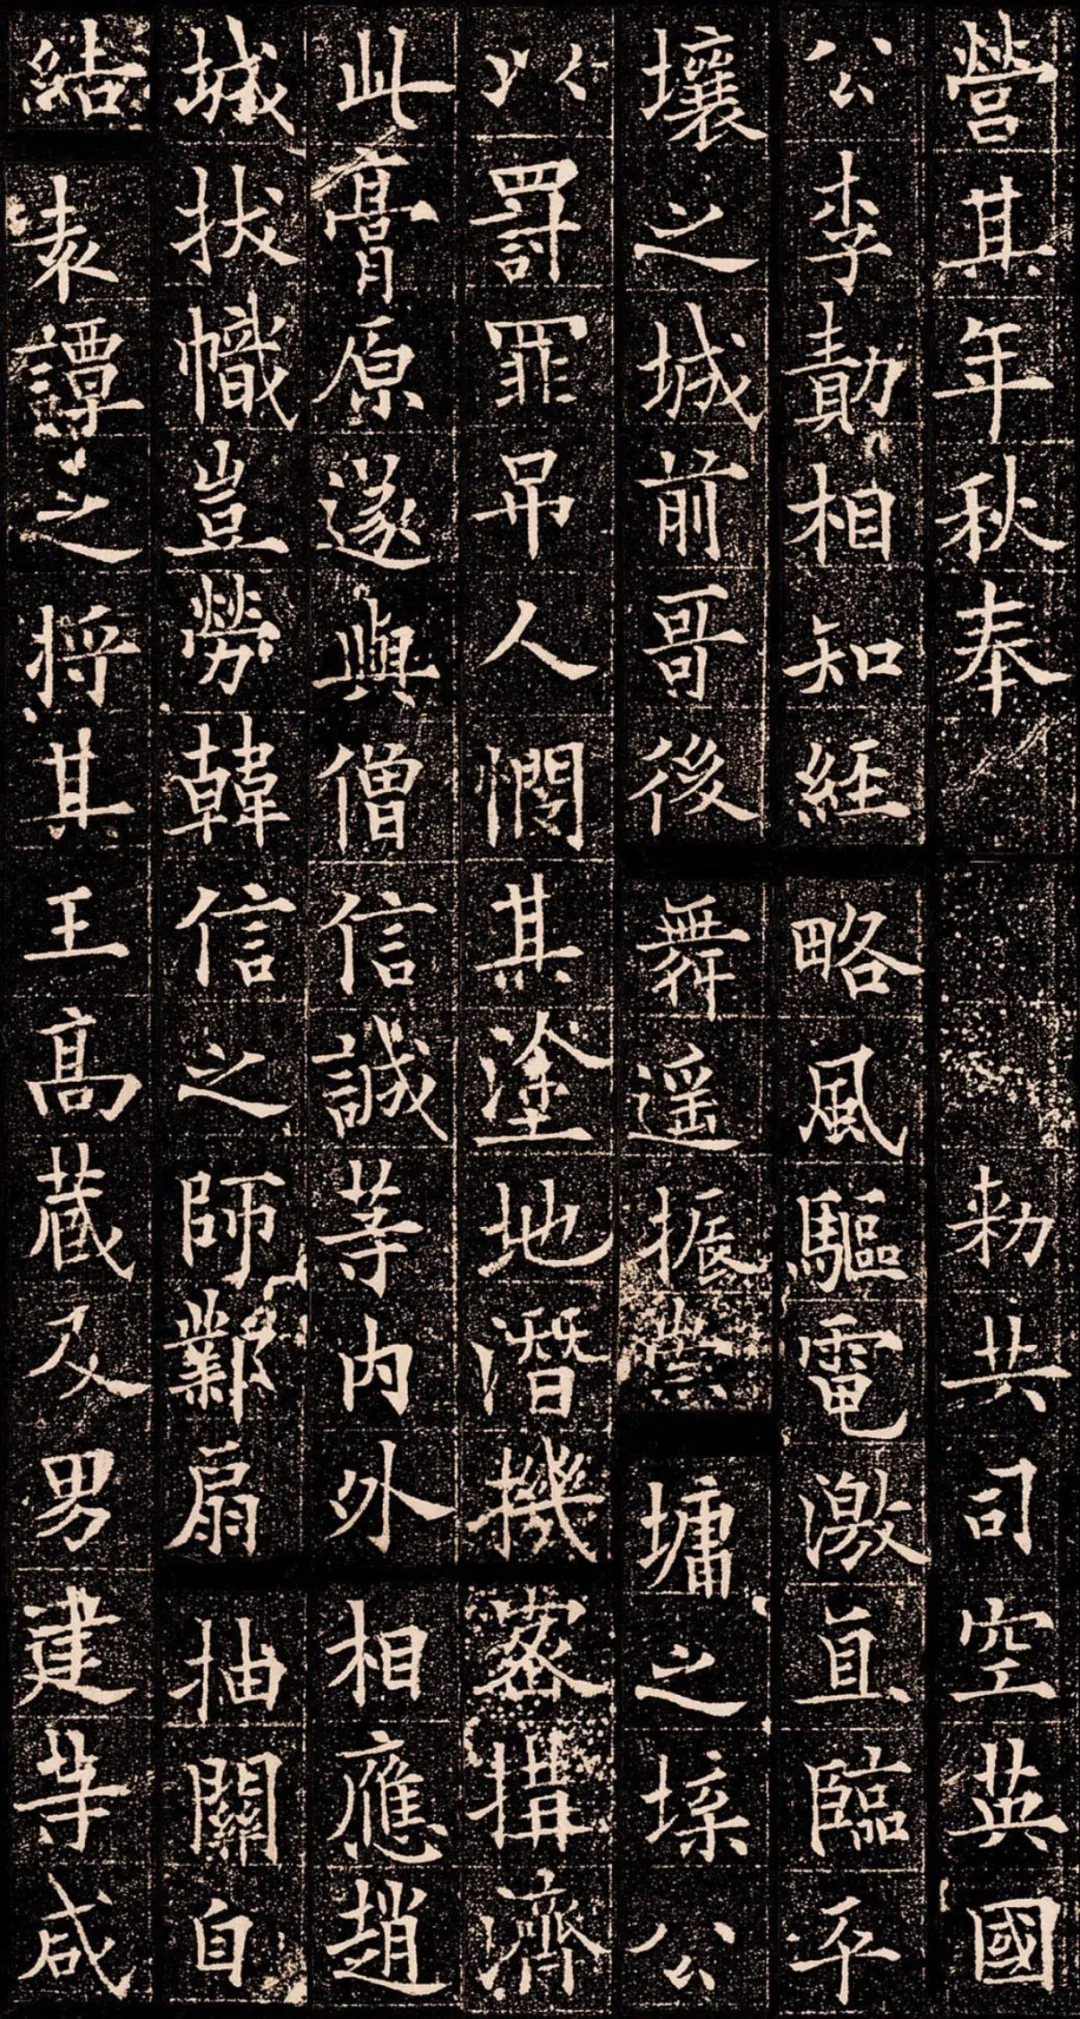 營其年秋奉勑共司空英國
公李勣相知經略風驅電激直臨平
壤之城前哥後舞遥振崇墉之堞公
以罰罪吊人憫其塗地潛機密搆濟
此膏原遂與僧信誠等内外相應趙
城拔幟豈勞韓信之師鄴扇抽關自
結袁譚之将其王高蔵及男建等咸